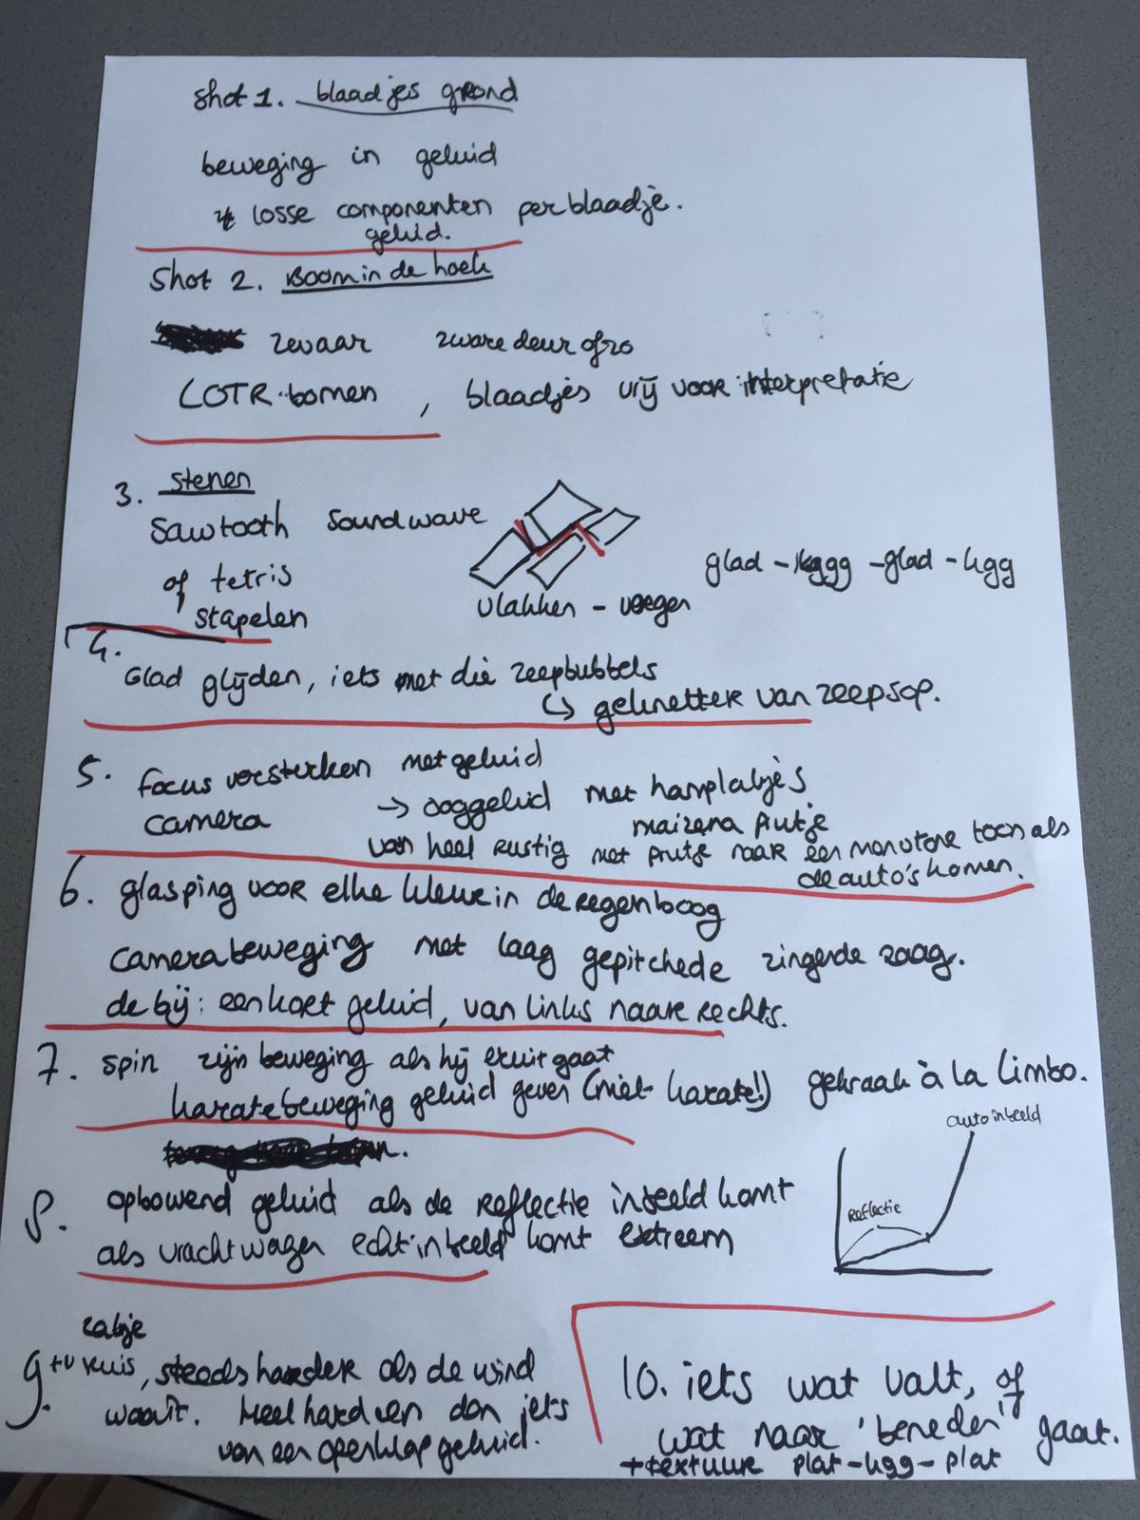 Shot 1. blaadjes grond
beweging in geluid
losse componenten per blaadje.
geluid.
Shot 2. Boom in de hoek
zwaar zware deur of zo
LOTR-bomen , blaadjes vrij voor interpretatie
3. stenen
Sawtooth Soundwave
of tetris
stapelen
vlakken - voegen
glad - kggg - glad - kgg
4.
Glad glijden, iets met die zeepbubbels
↳ geknetter van zeepsop.
5. focus versterken met geluid
camera → ooggeluid met hamplakjes
maizena prutje
van heel rustig met prutje naar een monotone toon als
de auto's komen.
6. glasping voor elke kleur in de regenboog
camerabeweging met laag gepitchede zingende zaag.
de bij: een kort geluid, van links naar rechts.
7. spin zijn beweging als hij eruit gaat
karatebeweging geluid geven (niet karate!) gekraak à la Limbo.
8. opbouwend geluid als de reflectie in beeld komt
als vrachtwagen echt in beeld komt extreem
auto in beeld
Reflectie
zakje
9. +v ruis, steeds harder als de wind
waait. Heel hard en dan iets
van een openklap geluid.
10. iets wat valt, of
wat naar 'beneden' gaat.
+textuur plat-kgg-plat